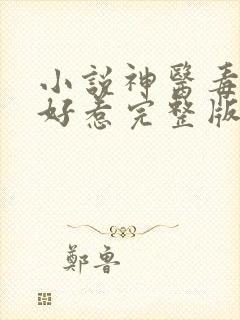 小說神醫毒
好惹完整版
鄭魯